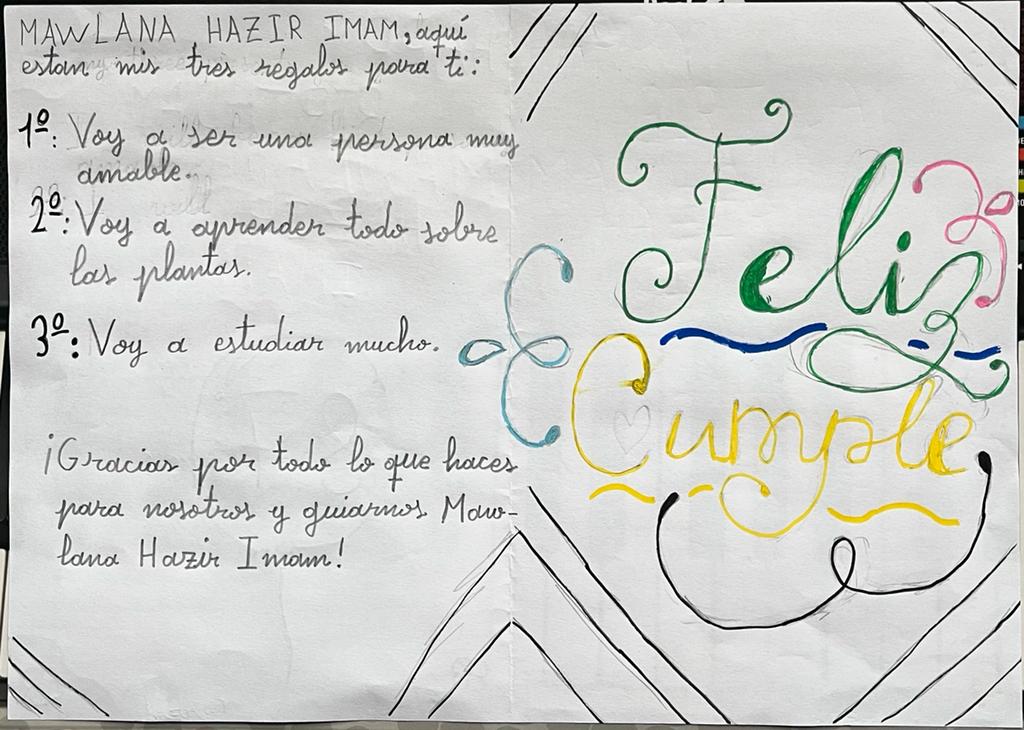 MAWLANA HAZIR IMAM, aquí
estan mis tres regalos para ti:
1º: Voy a ser una persona muy
amable.
2º: Voy a aprender todo sobre
las plantas.
3º: Voy a estudiar mucho.
¡Gracias por todo lo que haces
para nosotros y guiarnos Maw-
lana Hazir Imam!
Feliz
Cumple